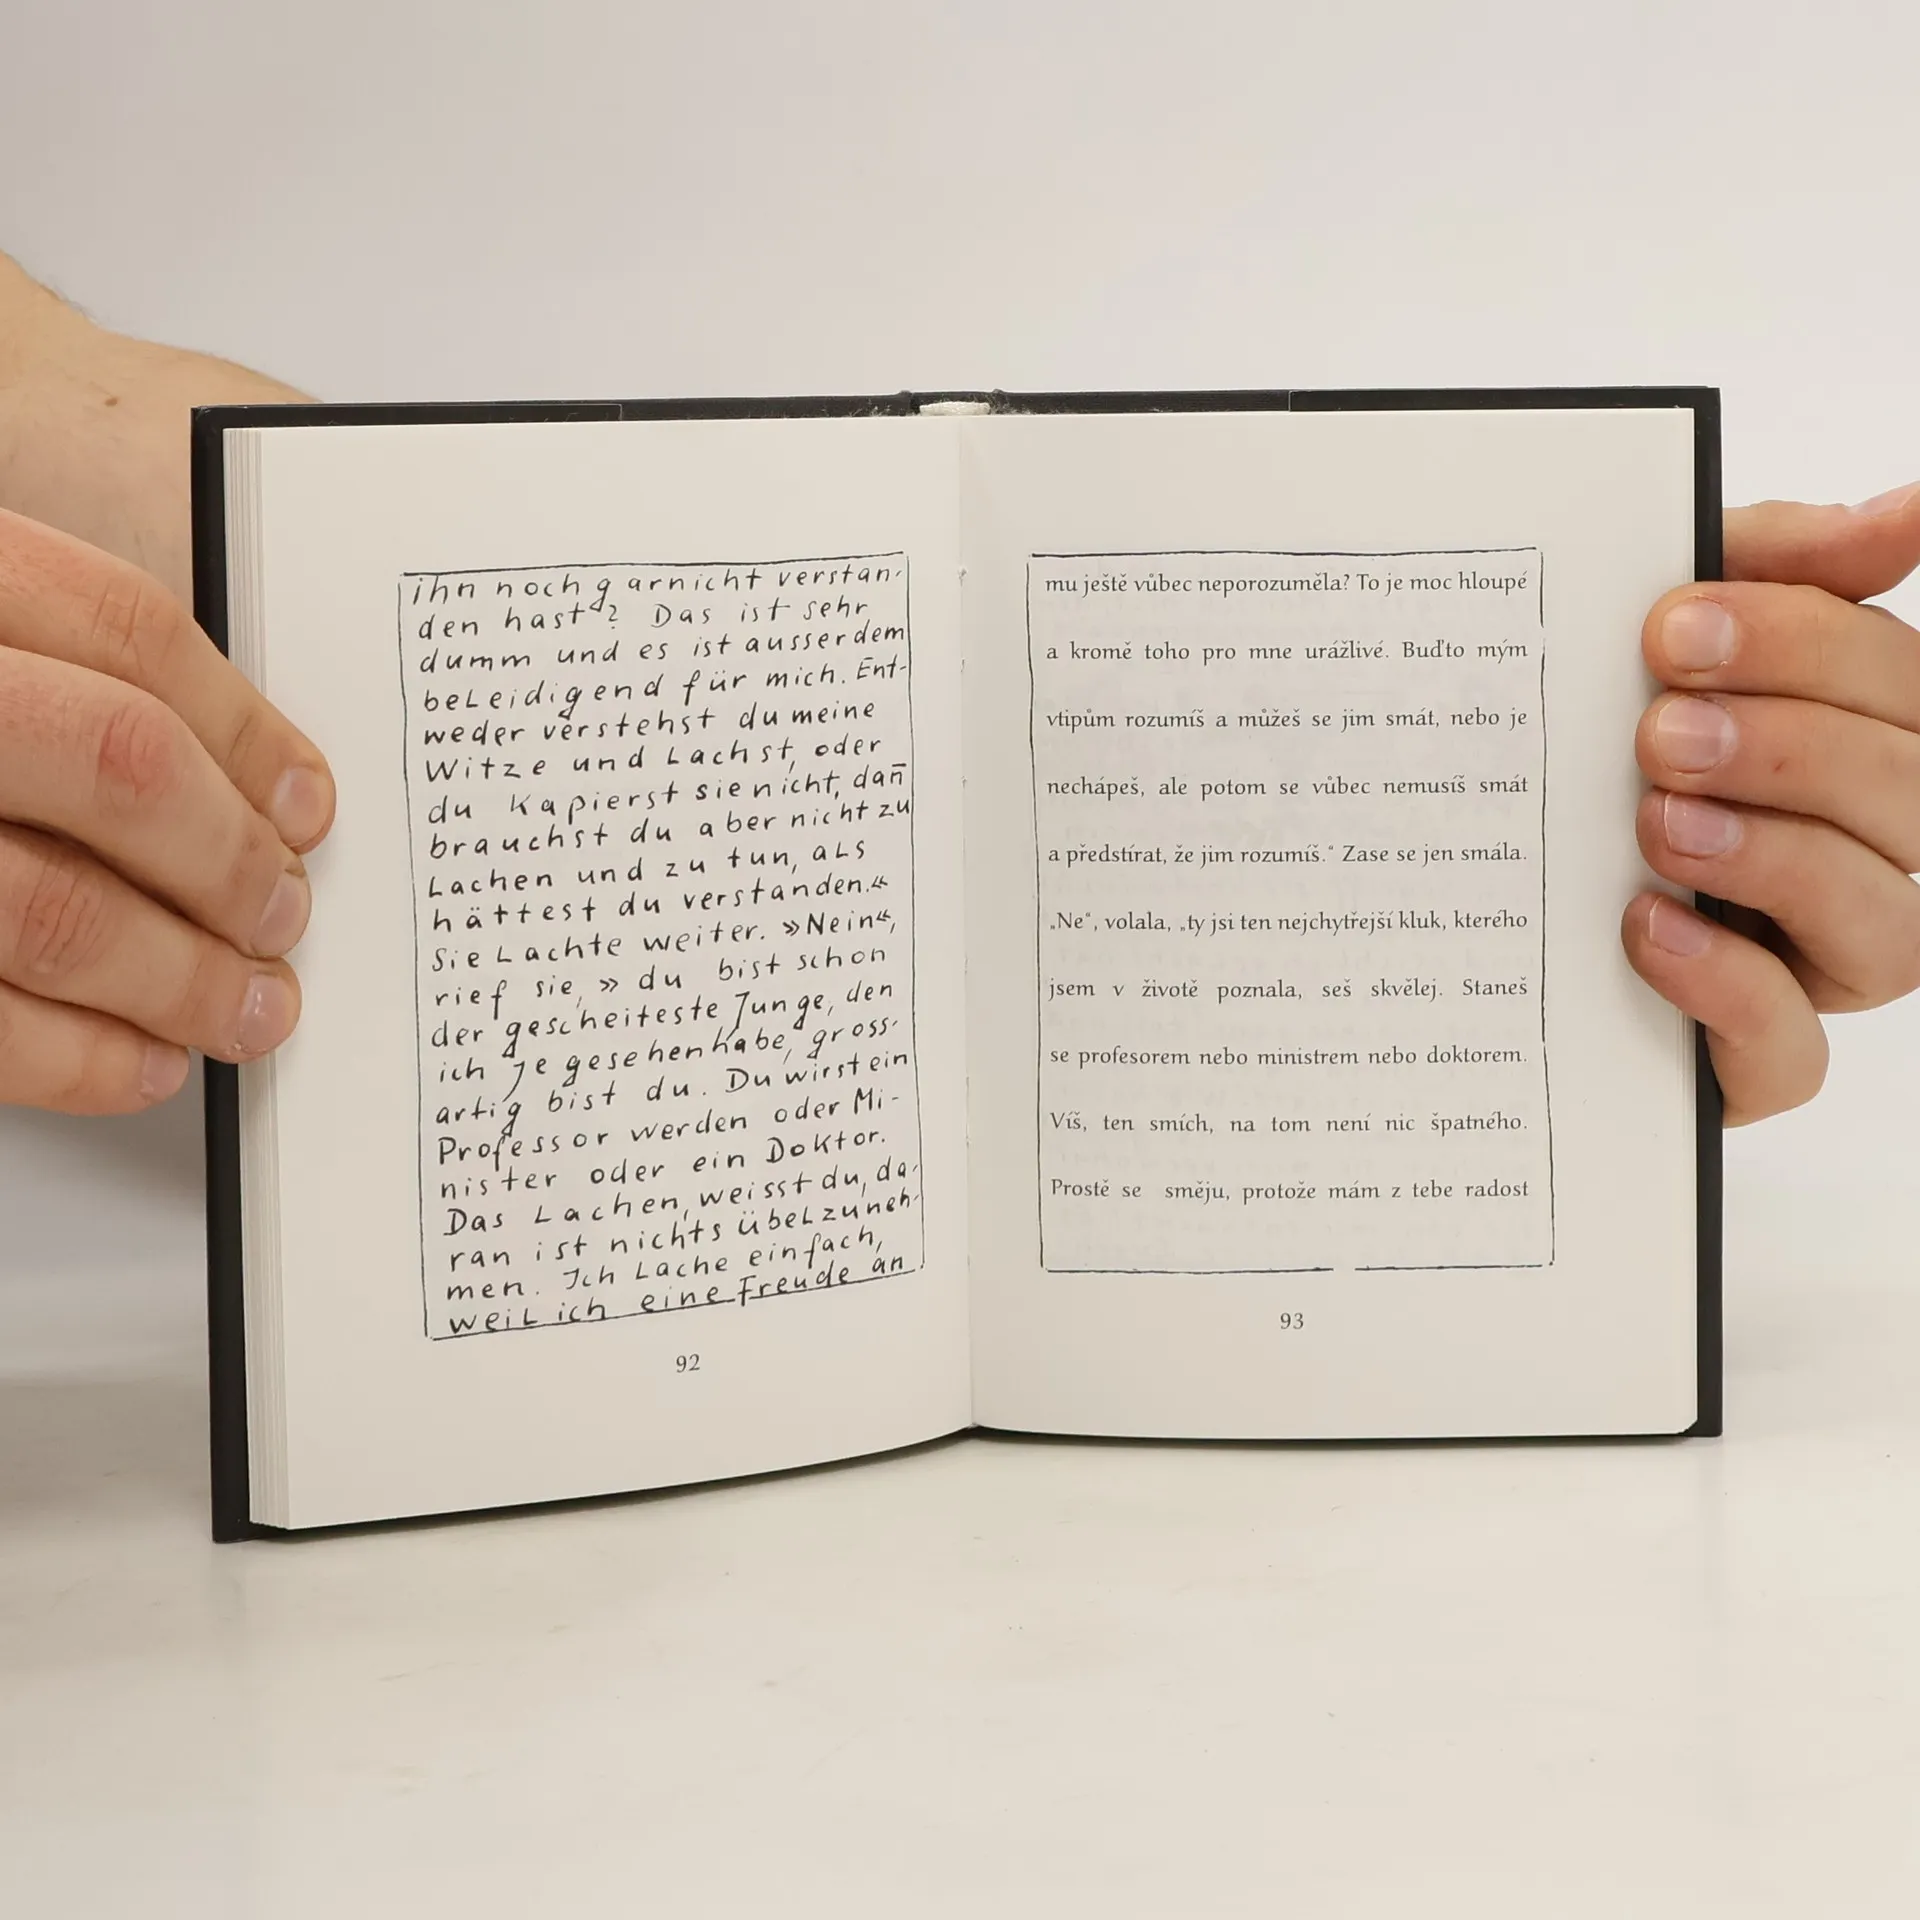 ihn noch garnicht verstan-
den hast? Das ist sehr
dumm und es ist ausserdem
beleidigend für mich. Ent-
weder verstehst du meine
Witze und lachst, oder
du kapierst sie nicht, dan̄
brauchst du aber nicht zu
lachen und zu tun, als
hättest du verstanden.«
Sie lachte weiter. »Nein«,
rief sie, » du bist schon
der gescheiteste Junge, den
ich je gesehen habe, gross-
artig bist du. Du wirst ein
Professor werden oder Mi-
nister oder ein Doktor.
Das Lachen, weisst du, da-
ran ist nichts übelzuneh-
men. Ich lache einfach,
weil ich eine Freude an
92
mu ještě vůbec neporozuměla? To je moc hloupé
a kromě toho pro mne urážlivé. Buďto mým
vtipům rozumíš a můžeš se jim smát, nebo je
nechápeš, ale potom se vůbec nemusíš smát
a předstírat, že jim rozumíš.“ Zase se jen smála.
„Ne“, volala, „ty jsi ten nejchytřejší kluk, kterého
jsem v životě poznala, seš skvělej. Staneš
se profesorem nebo ministrem nebo doktorem.
Víš, ten smích, na tom není nic špatného.
Prostě se směju, protože mám z tebe radost
93